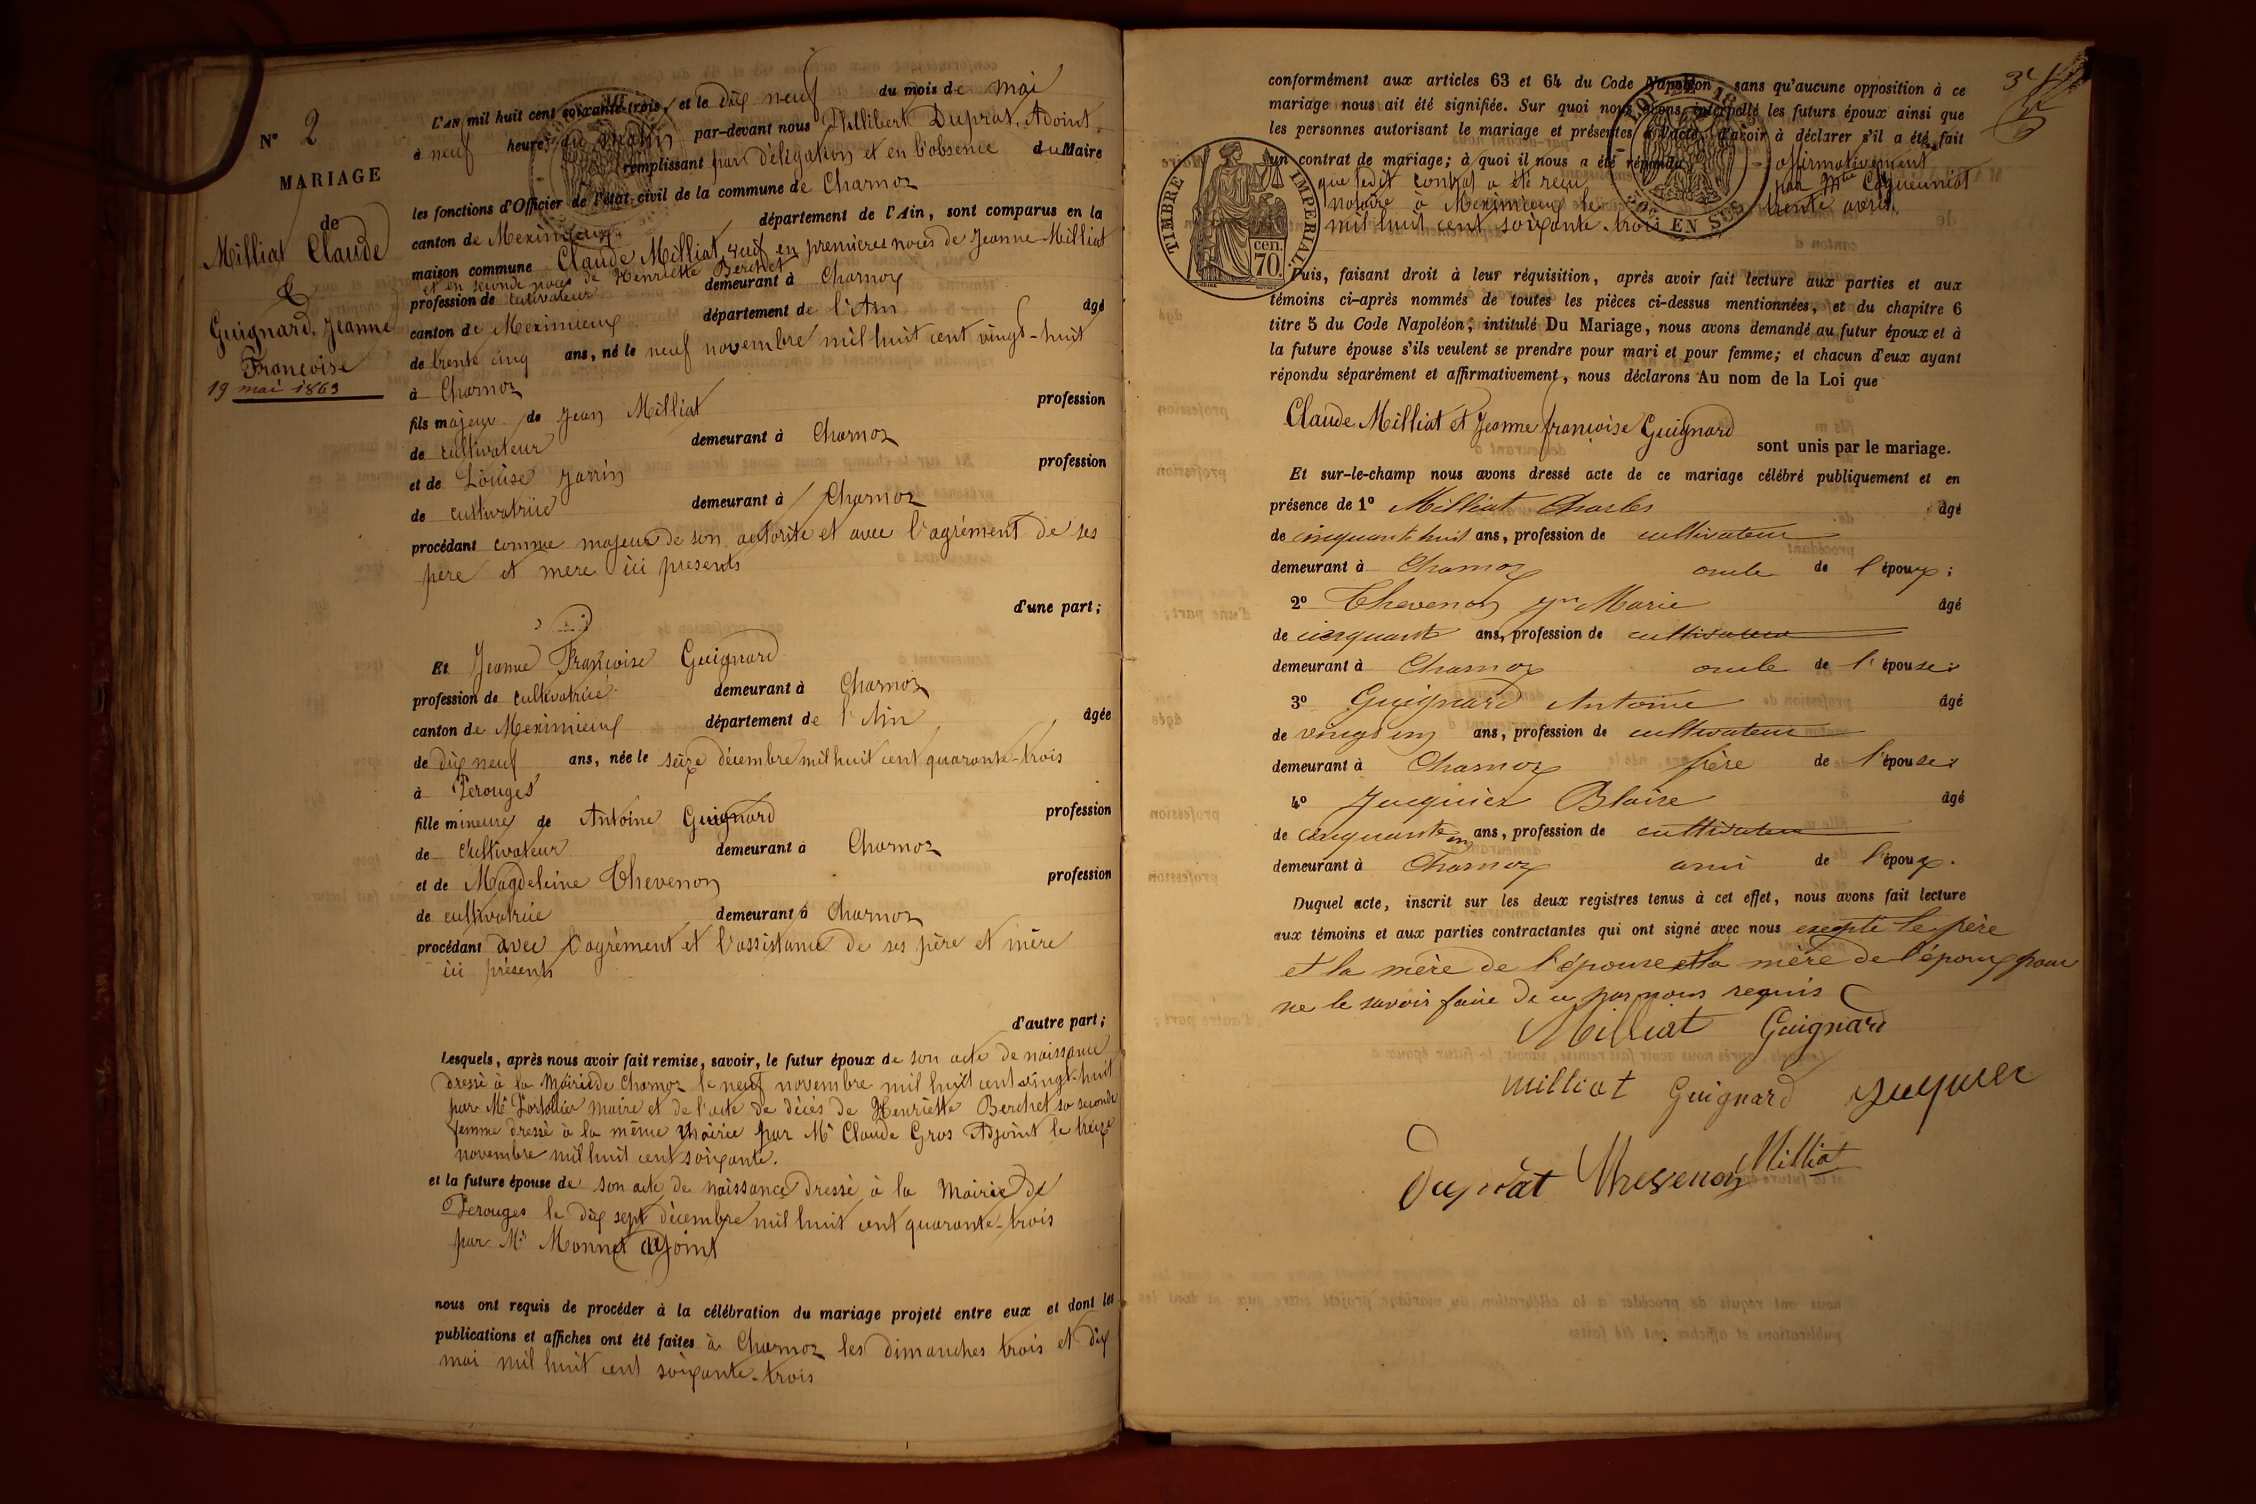 N° 2
MARIAGE
de
Milliat Claude
&
Guignard, Jeanne
Françoise
19 mai 1863
L'AN mil huit cent soixante-trois, et le dix neuf du mois de mai
à neuf heures du matin par-devant nous Philibert Duprat, Adjoint
remplissant par délégation et en l'absence du Maire
les fonctions d'Officier de l'état-civil de la commune de Charnoz
canton de Meximieux département de l'Ain, sont comparus en la
maison commune Claude Milliat, veuf en premières noces de Jeanne Milliat
et en seconde noces de Henriette Berchet
profession de cultivateur demeurant à Charnoz
canton de Meximieux département de l'Ain âgé
de trente cinq ans, né le neuf novembre mil huit cent vingt-huit
à Charnoz
fils majeur de Jean Milliat profession
de cultivateur demeurant à Charnoz
et de Louise Jarrin profession
de cultivatrice demeurant à Charnoz
procédant comme majeur de son autorité et avec l'agrément de ses
père et mère ici présents
d'une part;
Et Jeanne Françoise Guignard
profession de cultivatrice demeurant à Charnoz
canton de Meximieux département de l'Ain, âgée
de dix neuf ans, née le seize décembre mil huit cent quarante-trois
à Perouges
fille mineure de Antoine Guignard profession
de cultivateur demeurant à Charnoz
et de Magdeleine Thevenon profession
de cultivatrice demeurant à Charnoz
procédant avec l'agrément et l'assistance de ses père et mère
ici présents
d'autre part;
Lesquels, après nous avoir fait remise, savoir, le futur époux de son acte de naissance
dressé à la Mairie de Charnoz le neuf novembre mil huit cent vingt-huit
par Mr Portallier maire et de l'acte de décès de Henriette Berchet sa seconde
femme dressé à la même Mairie par Mr Claude Gros Adjoint le treize
novembre mil huit cent soixante.
et la future épouse de son acte de naissance dressé à la Mairie de
Perouges le dix sept décembre mil huit cent quarante-trois
par Mr Monnet adjoint
nous ont requis de procéder à la célébration du mariage projeté entre eux et dont les
publications et affiches ont été faites à Charnoz les dimanches trois et dix
mai mil huit cent soixante-trois
conformément aux articles 63 et 64 du Code Napoléon, sans qu'aucune opposition à ce
mariage nous ait été signifiée. Sur quoi nous avons interpellé les futurs époux ainsi que
les personnes autorisant le mariage et présentes à l'acte, d'avoir à déclarer s'il a été fait
un contrat de mariage; à quoi il nous a été répondu affirmativement
que ledit contrat a été reçu par Me Coqueuniot
notaire à Meximieux le trente avril
mil huit cent soixante-trois
TIMBRE IMPERIAL
70 cen.
Puis, faisant droit à leur réquisition, après avoir fait lecture aux parties et aux
témoins ci-après nommés de toutes les pièces ci-dessus mentionnées, et du chapitre 6
titre 5 du Code Napoléon, intitulé Du Mariage, nous avons demandé au futur époux et à
la future épouse s'ils veulent se prendre pour mari et pour femme; et chacun d'eux ayant
répondu séparément et affirmativement, nous déclarons Au nom de la Loi que
Claude Milliat et Jeanne françoise Guignard
sont unis par le mariage.
Et sur-le-champ nous avons dressé acte de ce mariage célébré publiquement et en
présence de 1° Milliat Charles âgé
de cinquante huit ans, profession de cultivateur
demeurant à Charnoz oncle de l'époux;
2° Thevenon Jn Marie âgé
de cinquante ans, profession de cultivateur
demeurant à Charnoz oncle de l'épouse;
3° Guignard Antoine âgé
de vingt un ans, profession de cultivateur
demeurant à Charnoz frère de l'épouse;
4° Juquier Blaise âgé
de cinquante un ans, profession de cultivateur
demeurant à Charnoz ami de l'époux.
Duquel acte, inscrit sur les deux registres tenus à cet effet, nous avons fait lecture
aux témoins et aux parties contractantes qui ont signé avec nous excepté le père
et la mère de l'épouse et la mère de l'époux pour
ne le savoir faire de ce par nous requis
Milliat Guignard
milliat Guignard Juquier
Duprat Thevenon Milliat